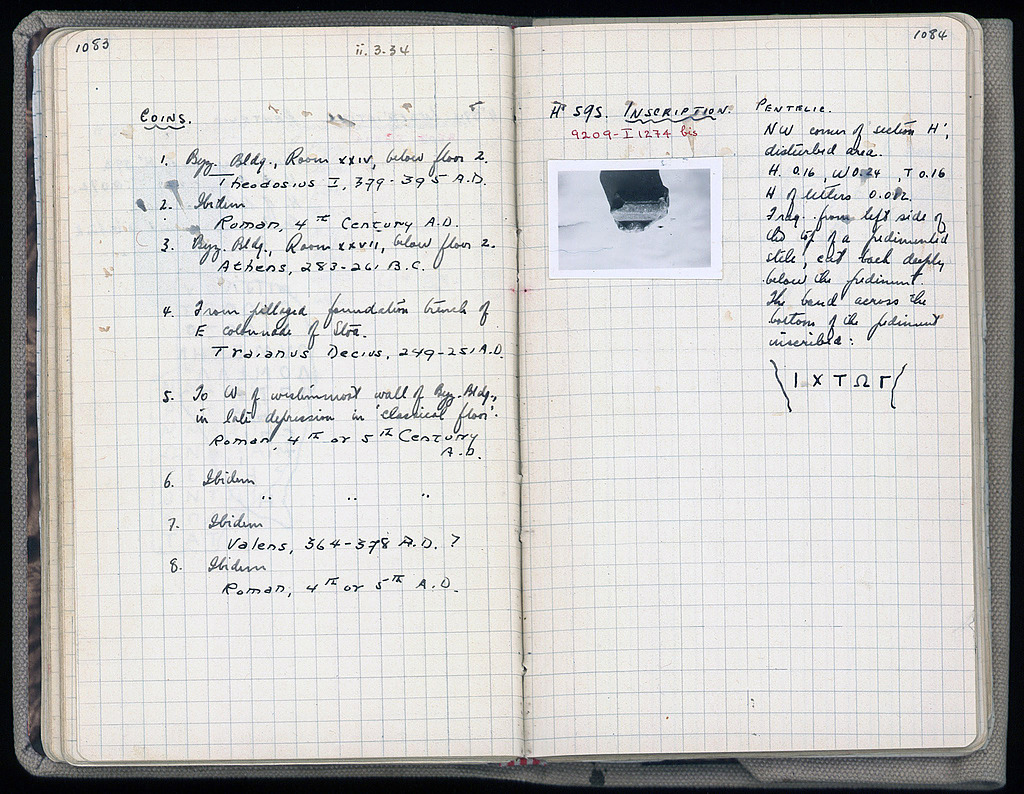 1083
ii. 3-34
COINS.
1. Byz. Bldg., Room XXIV, below floor 2.
Theodosius I, 379-395 A.D.
2. Ibidem
Roman, 4TH Century A.D.
3. Byz. Bldg., Room XXVII, below floor 2.
Athens, 283-261 B.C.
4. From pillaged foundation trench of
E colonnade of Stoa.
Traianus Decius, 249-251 A.D.
5. To W of westernmost wall of Byz. Bldg.,
in late depression in 'classical floor'.
Roman, 4TH or 5TH Century
A.D.
6. Ibidem
" " "
7. Ibidem
Valens, 364-378 A.D. ?
8. Ibidem
Roman, 4TH or 5TH A.D.
1084
H' 595. INSCRIPTION.
9209-I 1274 bis
PENTELIC.
NW corner of section H',
disturbed area.
H. 0.16, W 0.24, T 0.16
H of letters 0.012.
Frag. from left side of
the top of a pedimented
stele, cut back deeply
below the pediment.
The band across the
bottom of the pediment
inscribed:
Ι Χ Τ Ω Γ